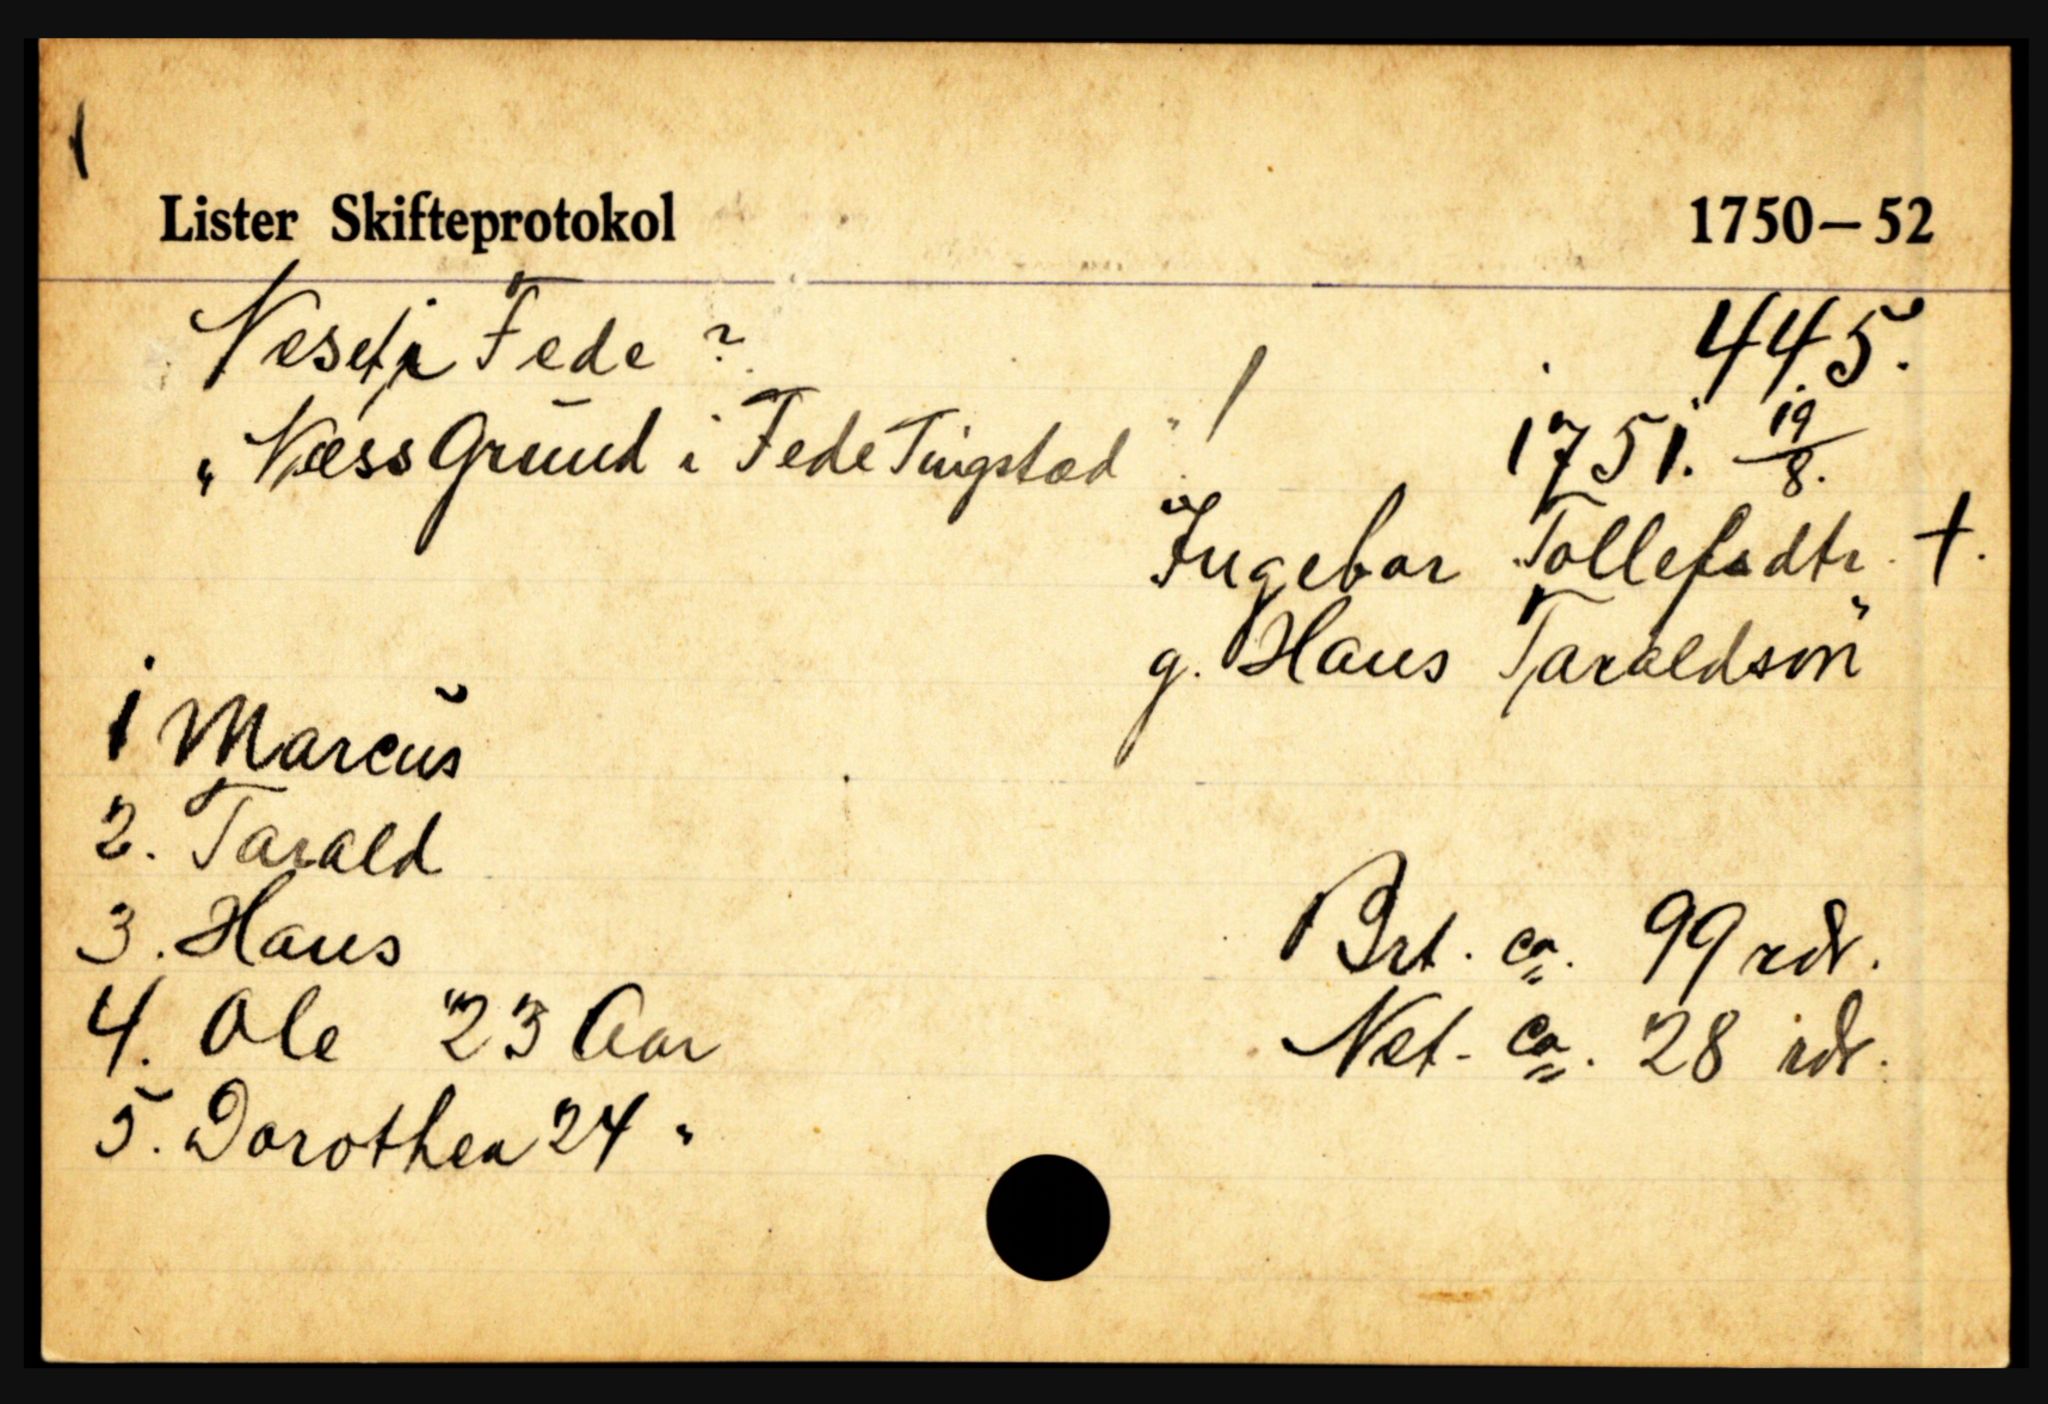 Lister Skifteprotokol 1750–52
Neset i Fede ? 445.
„Næss Grund i Fede Tingsted" / 1751. 19/8.
Ingebor Tollefsdtr. †.
g. Hans Taraldsøn
1 Marcus
2. Tarald
3. Hans
4. Ole 23 Aar
5. Dorothea 24 "
Brt. ca. 99 rdr.
Net. ca. 28 rdr.